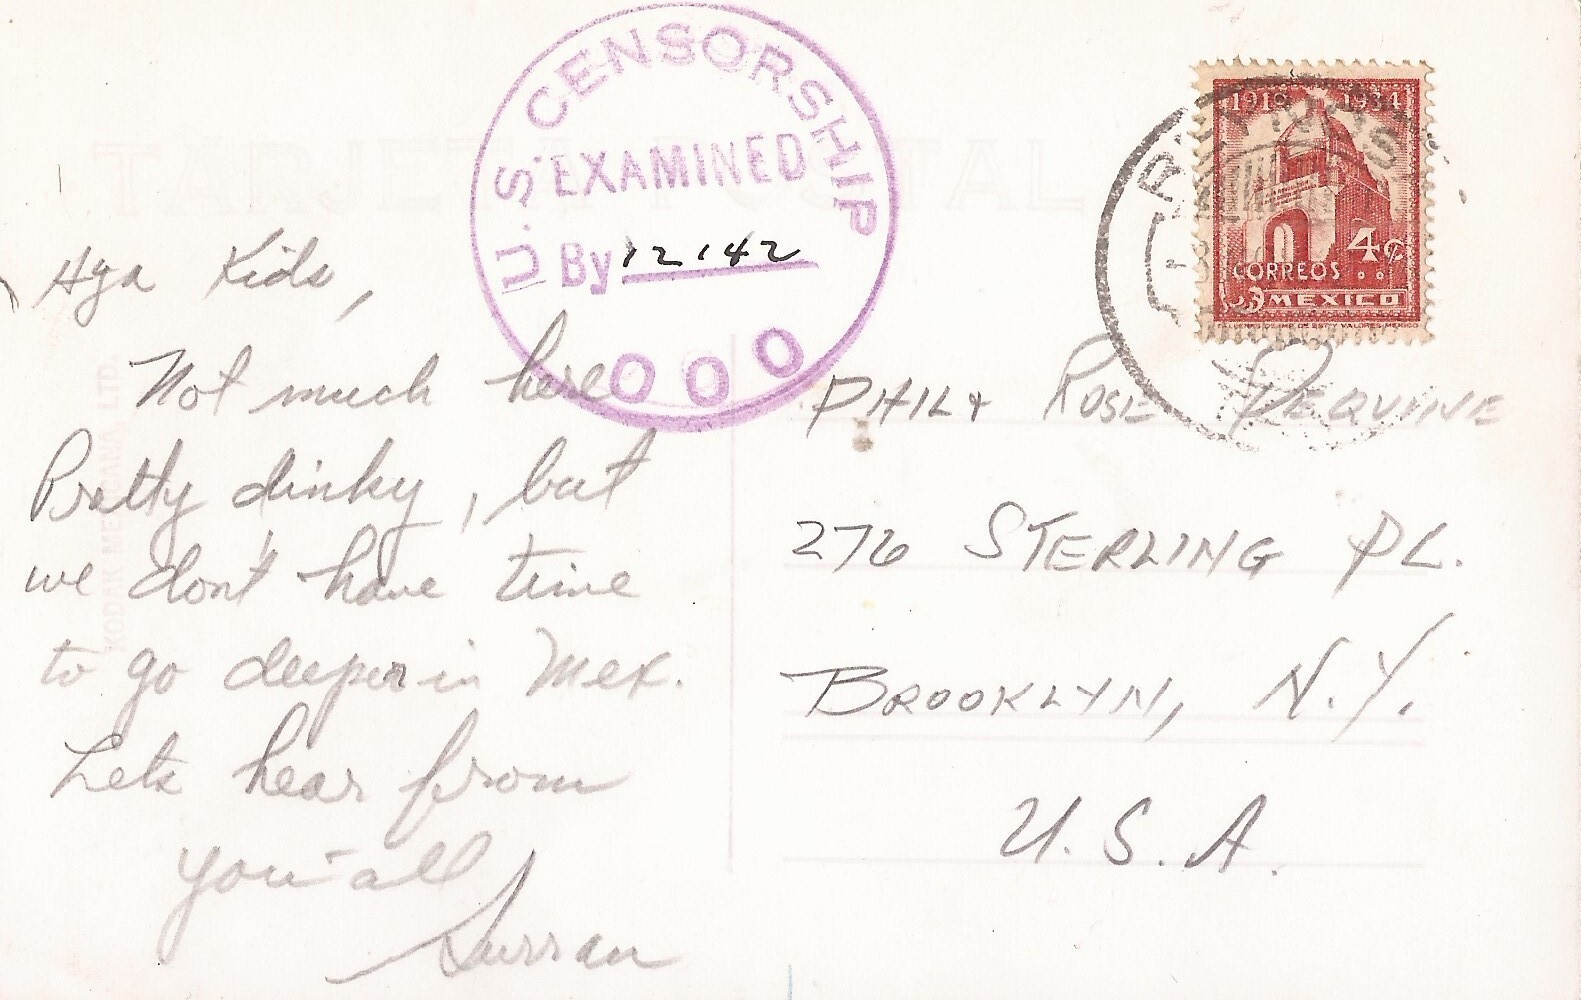 TARJETA POSTAL
U.S. CENSORSHIP
EXAMINED
By 12142
000
1910 1934
4¢
CORREOS
MEXICO
TALLERES DE IMP. DE EST. Y VALORES-MEXICO
KODAK MEXICANA, LTD.
Hya Kids,
Not much here
Pretty dinky, but
we don't have time
to go deeper in Mex.
Lets hear from
you-all
PHIL + ROSE
276 STERLING PL.
BROOKLYN, N.Y.
U.S.A.